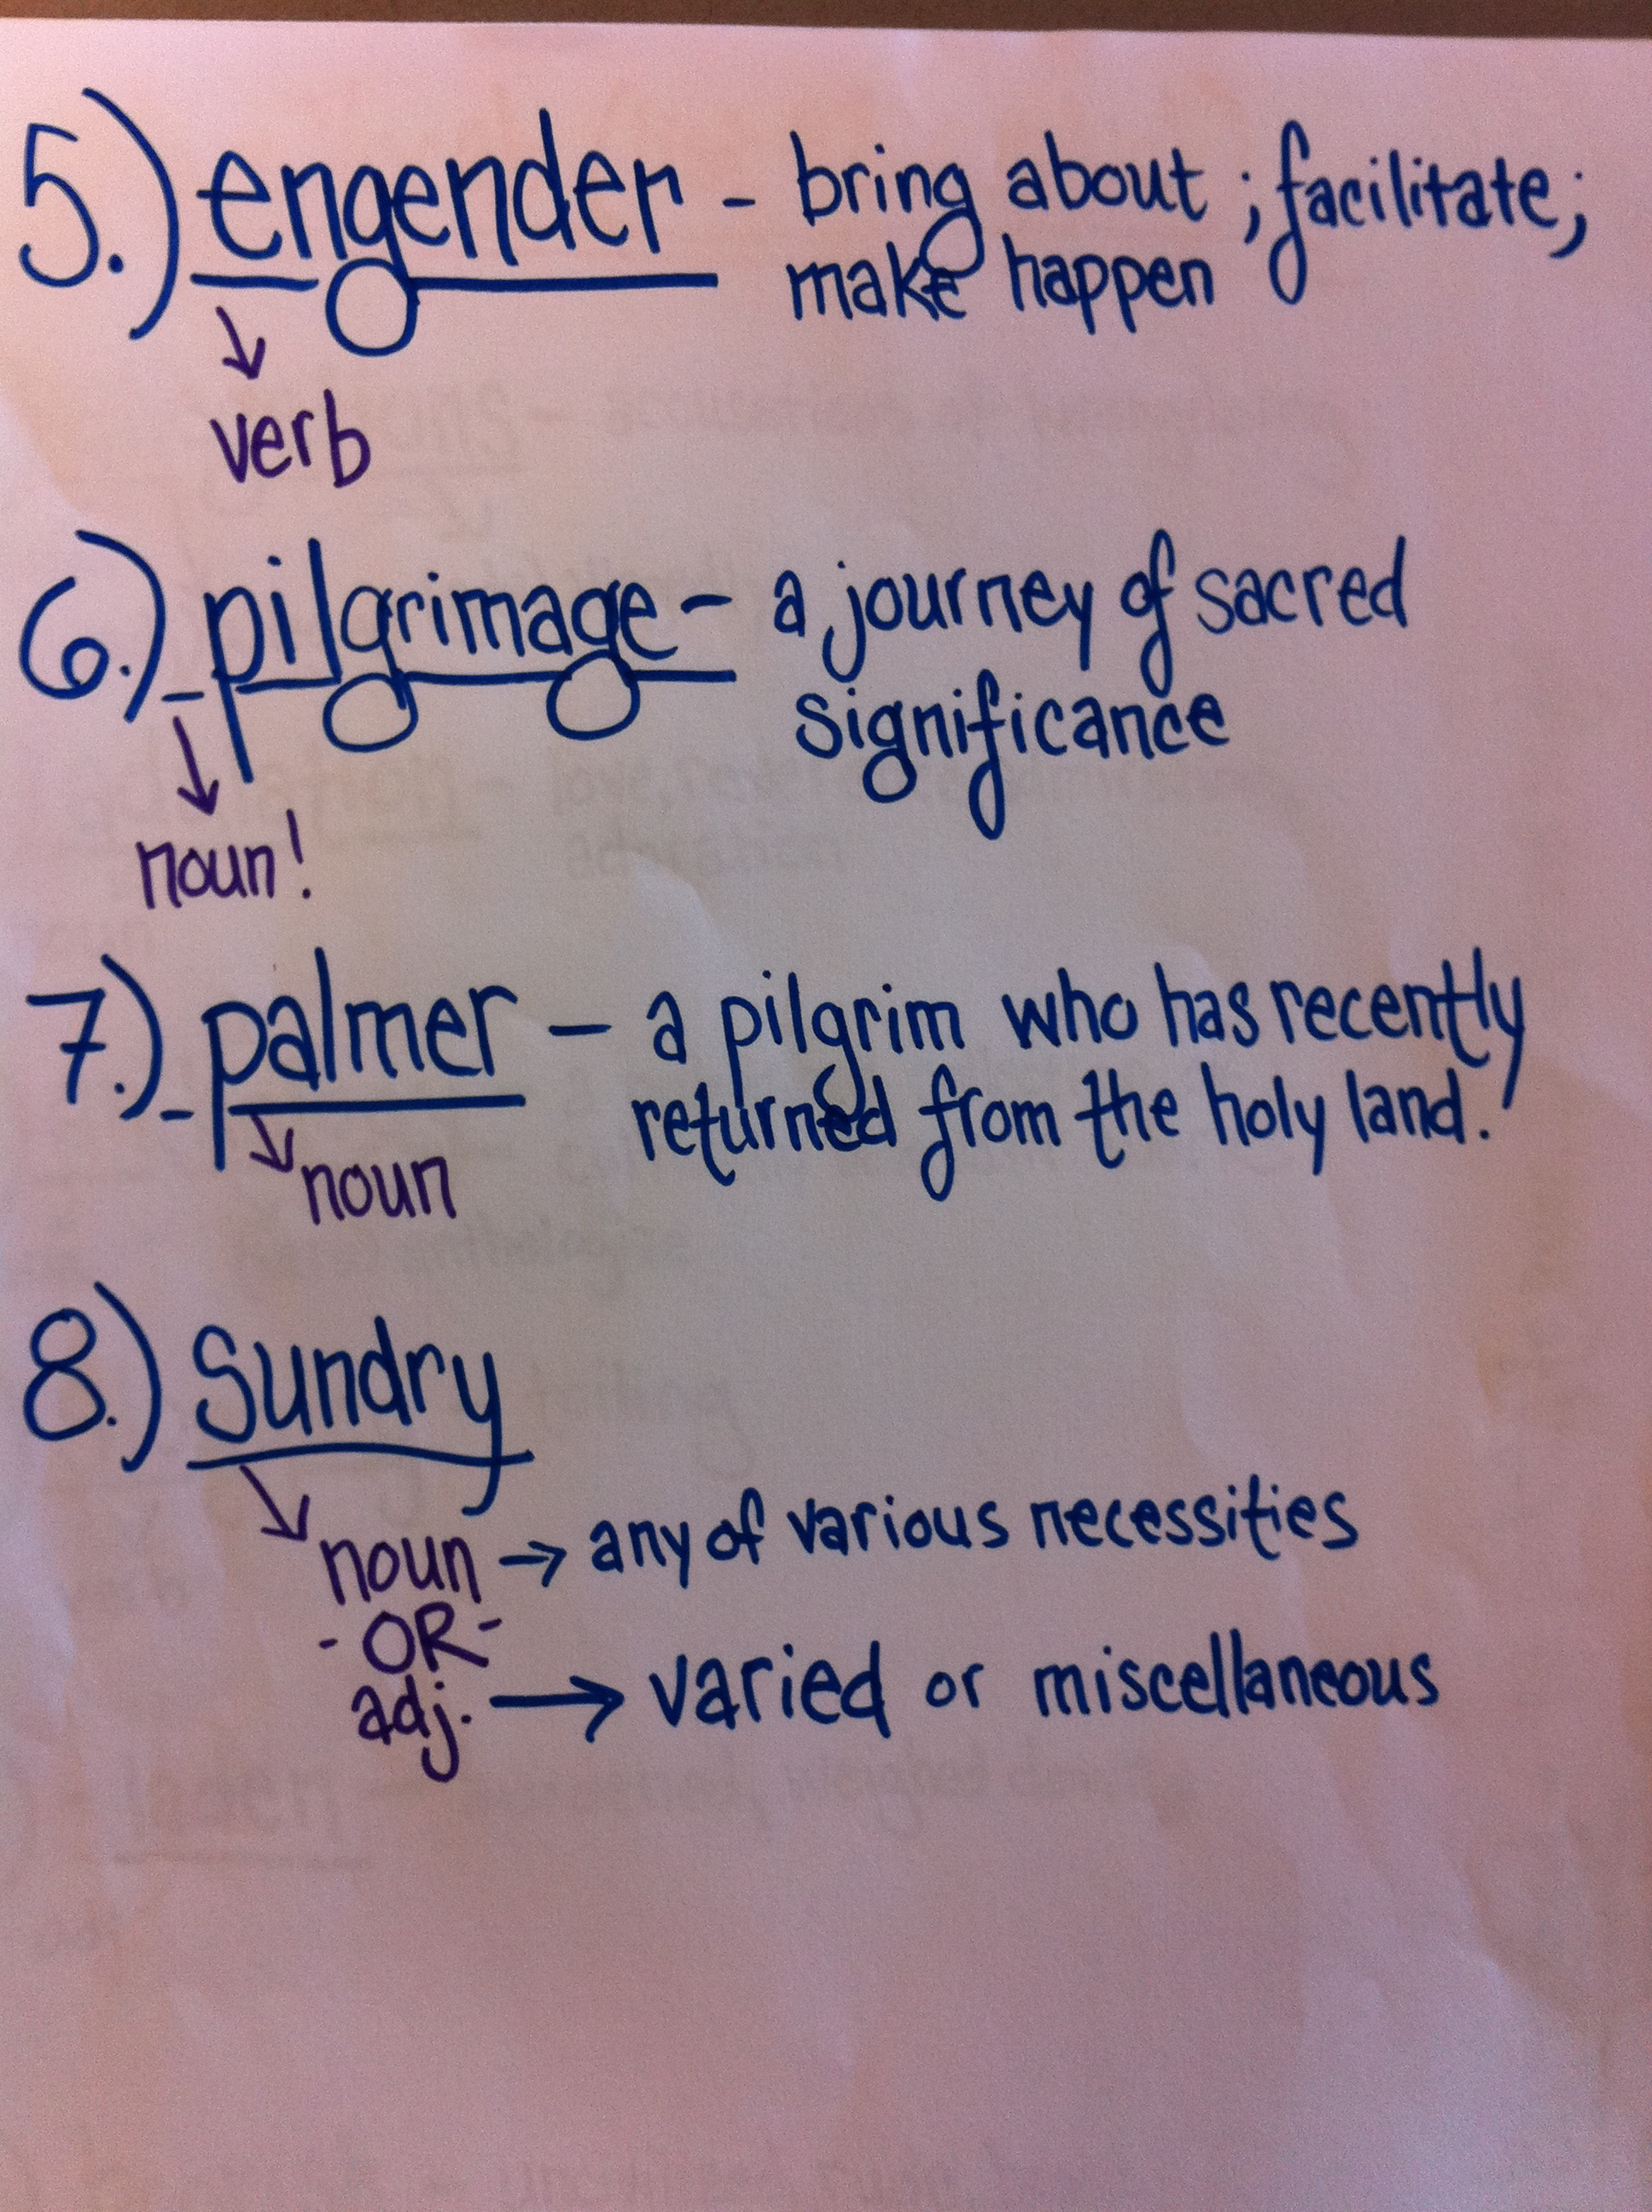 5.) engender - bring about ; facilitate;
make happen
verb
6.) pilgrimage - a journey of sacred
significance
noun!
7.) palmer - a pilgrim who has recently
returned from the holy land.
noun
8.) sundry
noun → any of various necessities
- OR -
adj. → varied or miscellaneous